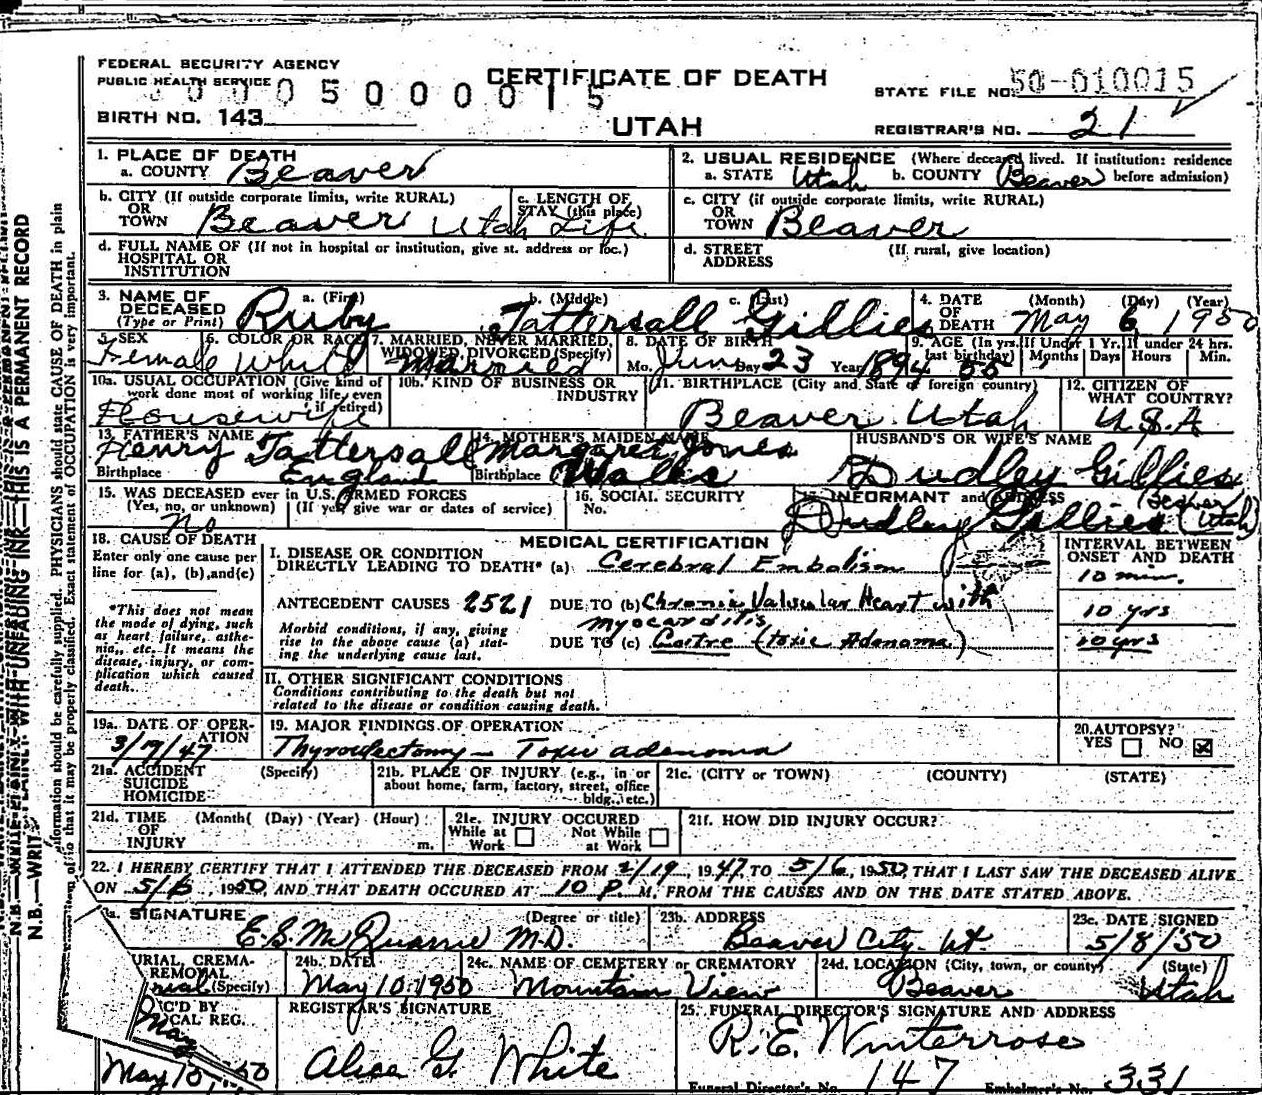 FEDERAL SECURITY AGENCY
PUBLIC HEALTH SERVICE
CERTIFICATE OF DEATH
STATE FILE NO. 50-010015
0005000015
BIRTH NO. 143
UTAH
REGISTRAR'S NO. 21
1. PLACE OF DEATH
a. COUNTY Beaver
2. USUAL RESIDENCE (Where deceased lived. If institution: residence before admission)
a. STATE Utah b. COUNTY Beaver
b. CITY (If outside corporate limits, write RURAL)
OR
TOWN Beaver Utah
c. LENGTH OF
STAY (this place)
Life
c. CITY (if outside corporate limits, write RURAL)
OR
TOWN Beaver
d. FULL NAME OF (If not in hospital or institution, give st. address or loc.)
HOSPITAL OR
INSTITUTION
d. STREET (If rural, give location)
ADDRESS
3. NAME OF
DECEASED
(Type or Print)
a. (First) b. (Middle) c. (Last)
Ruby Tattersall Gillies
4. DATE
OF
DEATH
(Month) (Day) (Year)
May 6 1950
5. SEX
Female
6. COLOR OR RACE
White
7. MARRIED, NEVER MARRIED,
WIDOWED, DIVORCED (Specify)
Married
8. DATE OF BIRTH
Mo. June Day 23 Year 1894
9. AGE (In yrs. last birthday) 55
If Under 1 Yr. Months Days
If under 24 hrs. Hours Min.
10a. USUAL OCCUPATION (Give kind of
work done most of working life, even
if retired)
Housewife
10b. KIND OF BUSINESS OR
INDUSTRY
11. BIRTHPLACE (City and State of foreign country)
Beaver Utah
12. CITIZEN OF
WHAT COUNTRY?
U.S.A
13. FATHER'S NAME
Henry Tattersall
Birthplace England
14. MOTHER'S MAIDEN NAME
Margaret Jones
Birthplace Wales
HUSBAND'S OR WIFE'S NAME
Dudley Gillies
15. WAS DECEASED ever in U.S. ARMED FORCES
(Yes, no, or unknown) (If yes, give war or dates of service)
No
16. SOCIAL SECURITY
No.
17. INFORMANT and ADDRESS
Dudley Gillies (Beaver Utah)
18. CAUSE OF DEATH
Enter only one cause per
line for (a), (b), and (c)
*This does not mean
the mode of dying, such
as heart failure, asthe-
nia, etc. It means the
disease, injury, or com-
plication which caused
death.
MEDICAL CERTIFICATION
I. DISEASE OR CONDITION
DIRECTLY LEADING TO DEATH* (a) Cerebral Embolism
ANTECEDENT CAUSES 2521 DUE TO (b) Chronic Valvular Heart with
myocarditis
Morbid conditions, if any, giving
rise to the above cause (a) stat-
ing the underlying cause last.
DUE TO (c) Goitre (toxic Adenoma)
INTERVAL BETWEEN
ONSET AND DEATH
10 min.
10 yrs
10 yrs
II. OTHER SIGNIFICANT CONDITIONS
Conditions contributing to the death but not
related to the disease or condition causing death.
19a. DATE OF OPER-
ATION
3/17/47
19. MAJOR FINDINGS OF OPERATION
Thyroidectomy - Toxic adenoma
20. AUTOPSY?
YES NO
21a. ACCIDENT (Specify)
SUICIDE
HOMICIDE
21b. PLACE OF INJURY (e.g., in or
about home, farm, factory, street, office
bldg., etc.)
21c. (CITY or TOWN) (COUNTY) (STATE)
21d. TIME (Month) (Day) (Year) (Hour)
OF
INJURY m.
21e. INJURY OCCURED
While at Work Not While at Work
21f. HOW DID INJURY OCCUR?
22. I HEREBY CERTIFY THAT I ATTENDED THE DECEASED FROM 2/19, 1947 TO 5/6, 1950, THAT I LAST SAW THE DECEASED ALIVE
ON 5/5, 1950, AND THAT DEATH OCCURED AT 10 P. M, FROM THE CAUSES AND ON THE DATE STATED ABOVE.
SIGNATURE (Degree or title)
E.S. McQuarrie M.D.
23b. ADDRESS
Beaver City Ut
23c. DATE SIGNED
5/8/50
URIAL, CREMA-
REMOVAL
(Specify)
24b. DATE
May 10, 1950
24c. NAME OF CEMETERY or CREMATORY
Mountain View
24d. LOCATION (City, town, or county) (State)
Beaver Utah
C'D BY
CAL REG.
May 10, 1950
REGISTRAR'S SIGNATURE
Alice G. White
25. FUNERAL DIRECTOR'S SIGNATURE AND ADDRESS
R.E. Winterrose
Funeral Director's No. 147 Embalmer's No. 331
N.B.—WRITE PLAINLY WITH UNFADING INK—THIS IS A PERMANENT RECORD
information should be carefully supplied. PHYSICIANS should state CAUSE OF DEATH in plain
so that it may be properly classified. Exact statement of OCCUPATION is very important.